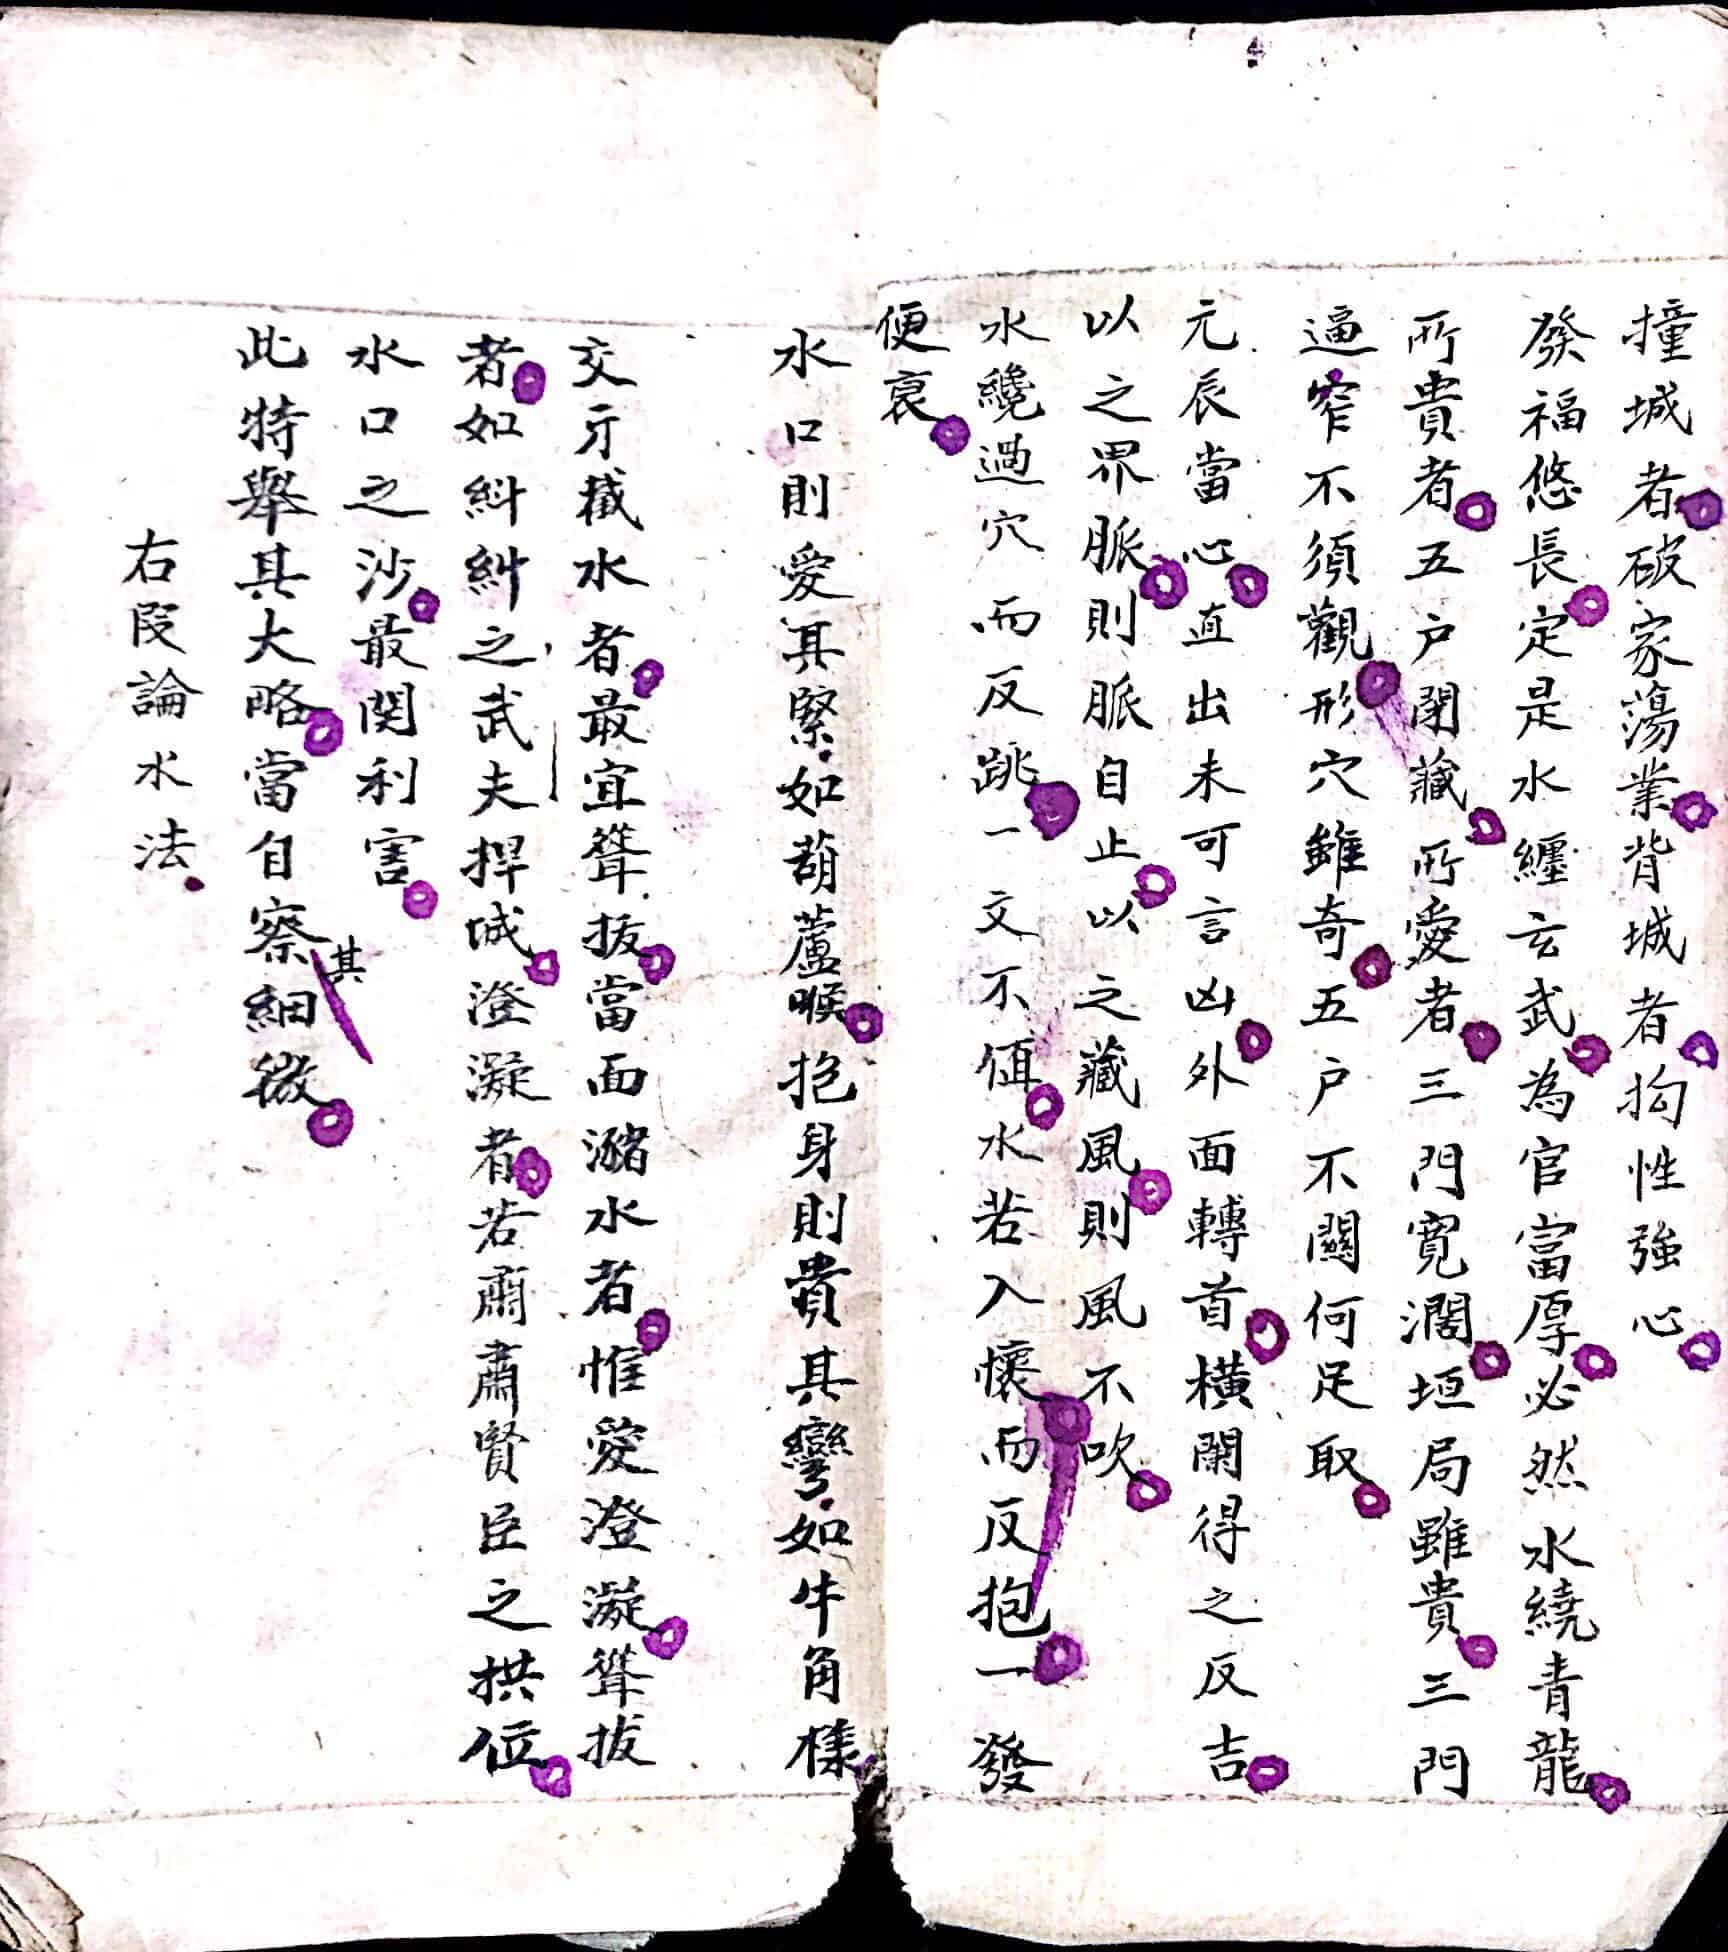 撞城者破家蕩業背城者拘性強心
發福悠長定是水纏玄武為官富厚必然水繞青龍
所貴者五户閉藏所愛者三門寛濶垣局雖貴三門
逼窄不須觀形穴雖奇五户不關何足取
元辰當心直出未可言凶外面轉首橫闌得之反吉
以之界脈則脈自止以之藏風則風不吹
水纔過穴而反跳一文不值水若入懷而反抱一發
便衰
水口則愛其緊如葫蘆喉抱身則貴其彎如牛角樣
交牙截水者最宜聳拔當面瀦水者惟愛澄凝聳拔
者如糾糾之武夫捍城澄凝者若肅肅賢臣之拱位
水口之沙最関利害
此特舉其大略當自察其細微
右段論水法